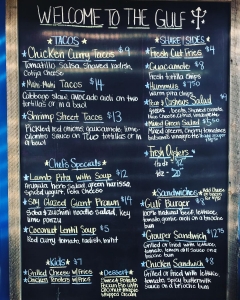 WELCOME TO THE GULF
TACOS
Chicken Curry Tacos $9
Tomatillo Salsa shaved radish,
Cotija cheese
Mahi-Mahi Tacos $14
Cabbage slaw, avocado aioli on two
tortillas or in a bowl
Shrimp Street Tacos $13
Pickled red onions, guacamole, lime
cilantro sauce on two tortillas or
in a bowl
Chef's Specials
Lamb Pita with Soup $12
Arugula, herb salad, green harissa,
spiced yogurt, Feta cheese
Soy Glazed Giant Prawn $14
Soba & zucchini noodle salad, key
lime ponzu
Coconut Lentil Soup $5
Red curry, tomato, radish
Kids $7
Grilled Cheese w/Fries
Chicken Tenders w/Fries
Dessert
SHARE | SIDES
Fresh Cut Fries $4
Guacamole $8
Fresh tortilla chips
Hummus $
pita chips
Salad $
Mixed Green Salad $
Mixed greens, cherry tomatoes
Fresh Oysters
Sandwiches
Gulf Burger $8
100% natural beef, lettuce,
tomato, garlic aioli on a brioche
bun
Grouper Sandwich $12
Grilled or fried with lettuce,
tomato, tartar sauce on
a brioche bun
Chicken Sandwich $8
Grilled or fried with lettuce,
tomato, spicy buttermilk
sauce on a brioche bun